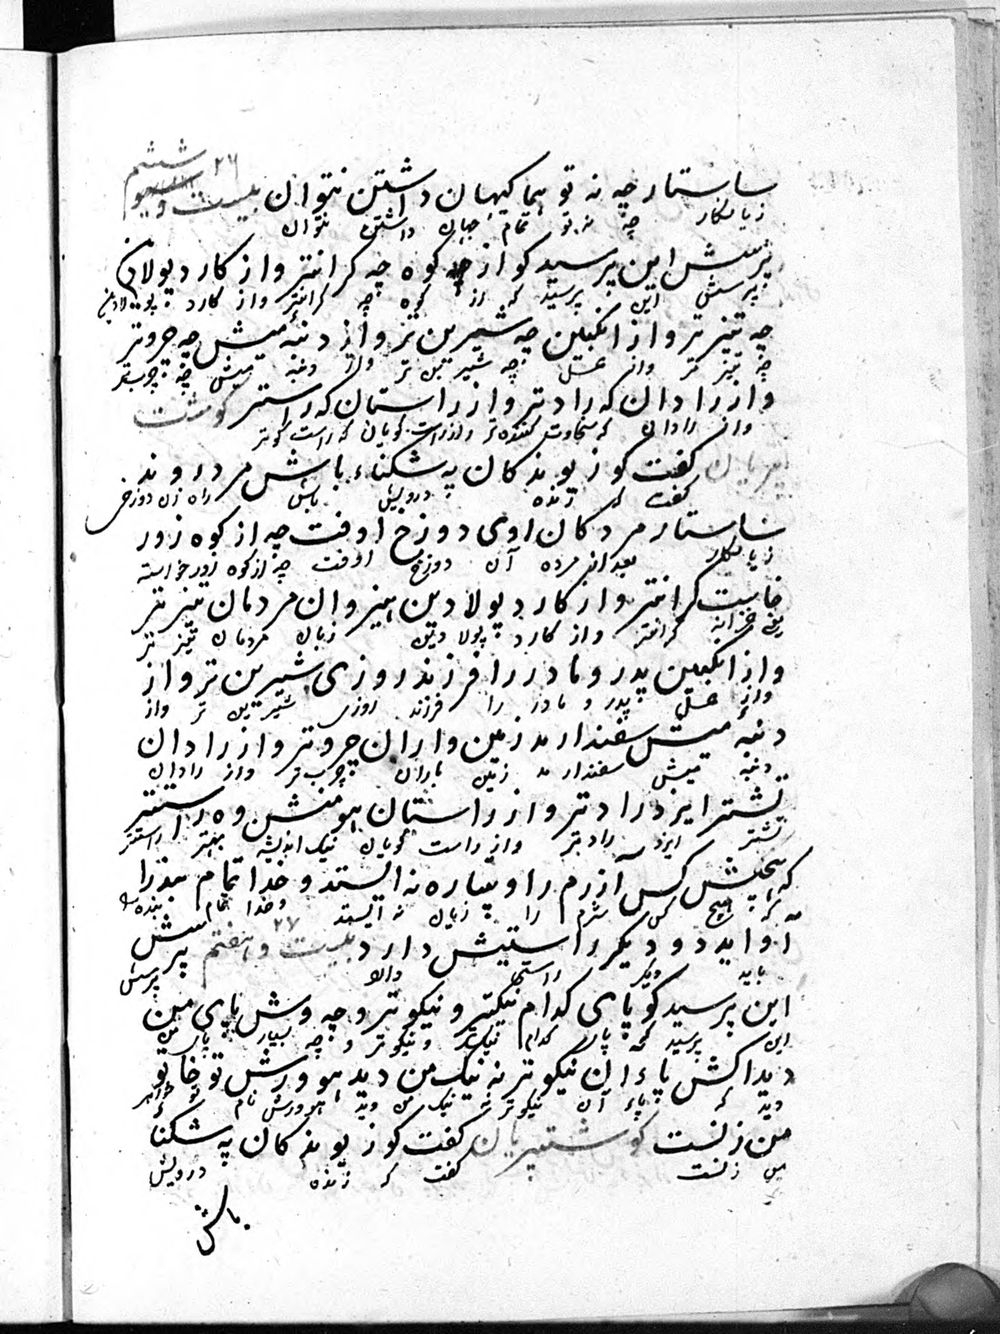 ششم
۲۶
ساستار چه نه تو هما کیهان داشتن نتوان بیست و
زیانکار چه نه تو تمام جهان داشتن نتوان
پرسش این پرسید کو از چه کوه چه کرانتر و از کارد پولادین
پرسش این پرسید که از کوه چه کرانتر واز کارد پولادین
چه تیز تر و از انکبین چه شیرین تر و از دنبه میش چه چروتر
چه تیز تر واز عسل چه شیرین تر واز دنبه میش چه چوبتر
و از رادان که رادتر و از راستان که راستر کوشت
واز رادان که سخاوت کننده تر واز راست کویان که راست کوتر
پریان کفت کو زیوندکان په شکناء باش مر دروند
کفت که زنده درویش باش راه زن دوزخی
ساستار مردکان اوی دوزخ اوفت چه از کوه زور
زیانکار بعد از مرده آن دوزخ اوفت چه از کوه زور خواسته
خاست کرانتر و از کارد پولادین هیزوان مردمان تیز تر
کرانتر واز کارد پولادین زبان مردمان تیز تر
و از انکبین پدر و مادر را فرزند روزی شیرین تر و از
واز عسل پدر و مادر را فرزند روزی شیرین تر واز
دنبه میش سفندارمد زمین واران چروتر و از رادان
دنبه میش سفندارمد زمین باران چربتر واز رادان
تشتر ایزد رادتر و از راستان هومنش وه راستتر
تشتر ایزد رادتر واز راست کویان نیک اندیشه بهتر راستتر
که هیچش کس آزرم را و پیاره نه ایستد و خدا تمام بنده را
که هیچ کس شرم را زیان نه ایستد وخدا تمام بنده
۲۷
آواید دو دیکر راستیش دارد بیست و هفتم پرسش
باید دیکر راستی دارد پرسش
این پرسید کو پای کدام نیکتر و نیکوتر و چه وش پای من
این پرسید که پای کدام نیکتر و نیکوتر و چه بسیار پای من
دیدا کش پاءان نیکوتر نه نیک من دید هوورش تو خا تو
دید که پاء آن نیکوتر نه نیک من دید هوورش نام تو خواهر
من زنست کوشت پریان کفت کو زیوندکان په شکنا
من زنست کفت که زنده درویش
باش